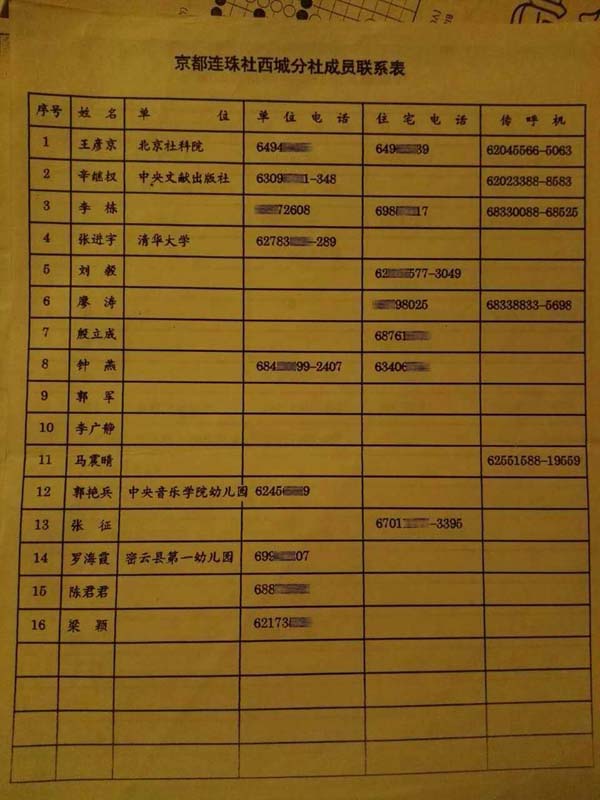 京都连珠社西城分社成员联系表
序号 姓名 单位 单位电话 住宅电话 传呼机
1 王彦京 北京社科院 6494 649 39 62045566-5063
2 辛继权 中央文献出版社 6309 1-348 62023388-8583
3 李栋 72608 698 17 68330088-68525
4 张进宇 清华大学 62783 -289
5 刘毅 62 577-3049
6 廖涛 98025 68338833-5698
7 殷立成 68761
8 钟燕 684 99-2407 63406
9 郭军
10 李广静
11 马震晴 62551588-19559
12 郭艳兵 中央音乐学院幼儿园 6245 9
13 张征 6701 -3395
14 罗海霞 密云县第一幼儿园 699 07
15 陈君君 688
16 梁颖 62173